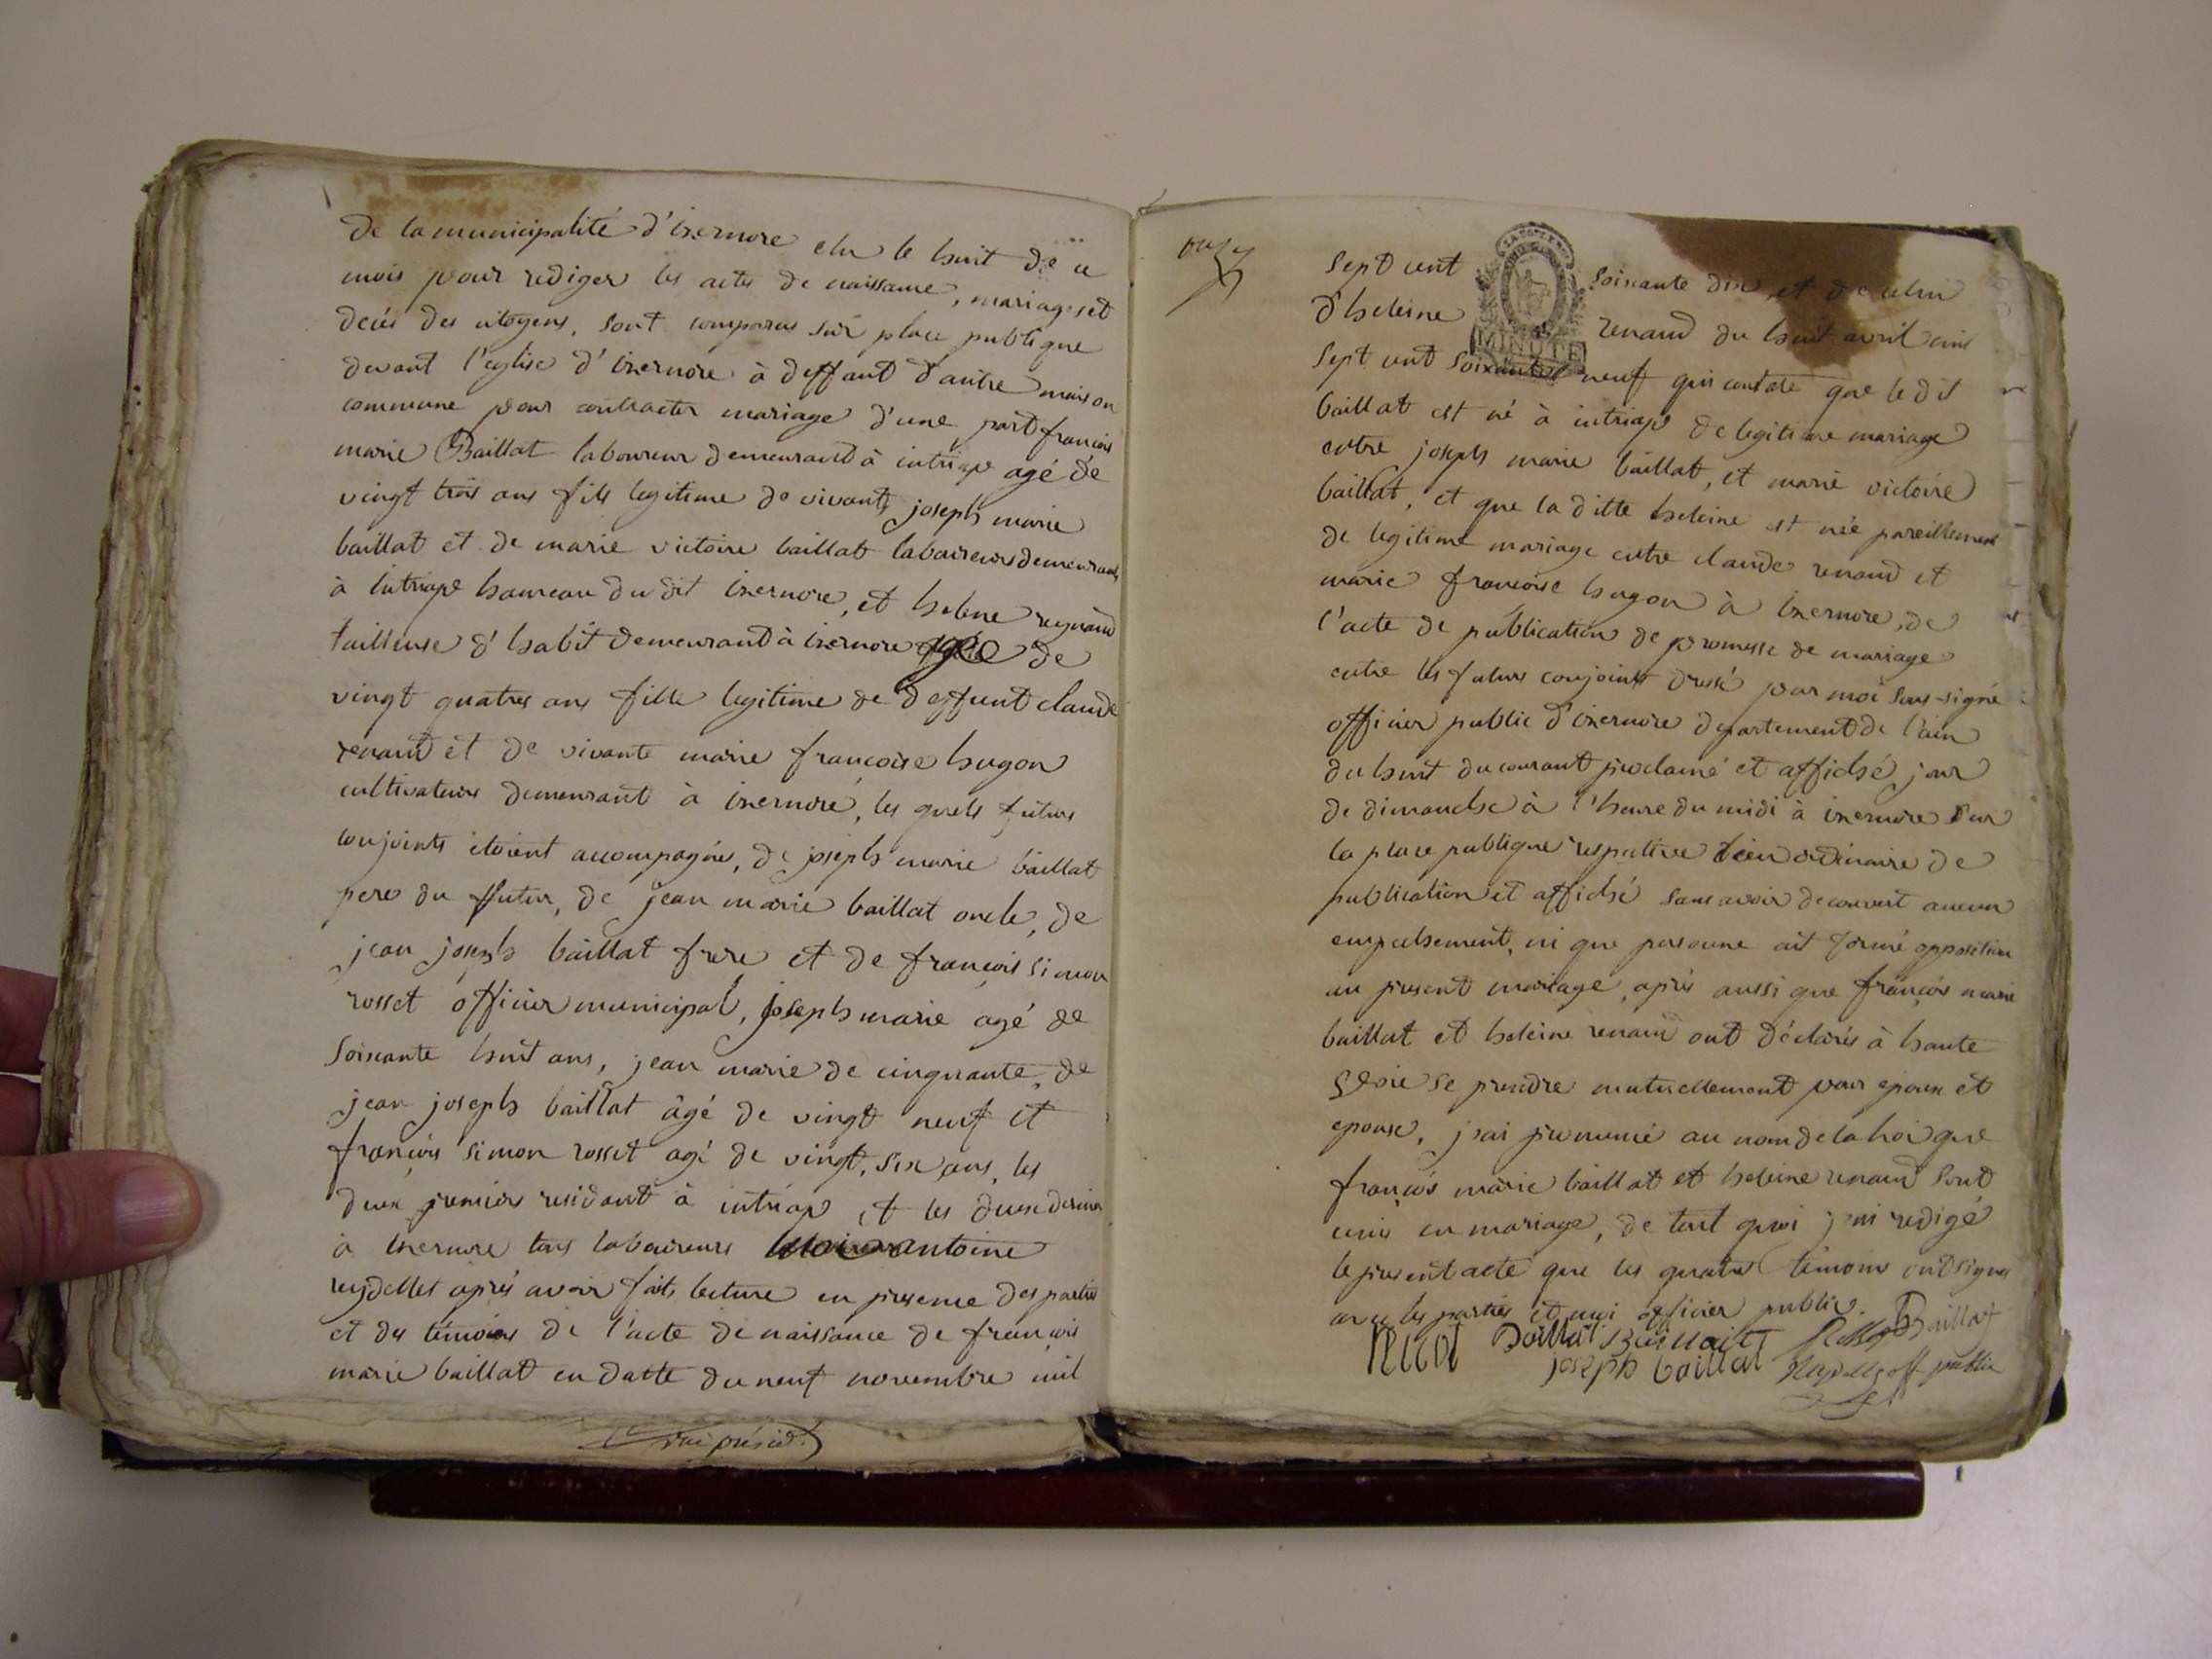 de la municipalité d'izernore elu le huit de ce
mois pour rediger les actes de naissance, mariages et
decés des citoyens, sont comparus sur place publique
devant l'eglise d'izernore à deffaut d'autre maison
commune pour contracter mariage d'une part francois
marie Baillat laboureur demeurant à intriap agé de
vingt trois ans fils legitime de vivants joseph marie
baillat et de marie victoire baillat laboureurs demeurants
à intriap hameau du dit izernore, et helene reynaud
tailleuse d'habit demeurant à izernore agée de
vingt quatres ans fille legitime de deffunt claude
renaud et de vivante marie francoise hugon
cultivateurs demeurant à izernore, les quels futurs
conjoints étoient accompagnés, de joseph marie baillat
pere du futur, de jean marie baillat oncle, de
jean joseph baillat frere et de francois simon
rosset officier municipal, joseph marie agé de
soixante huit ans, jean marie de cinquante, de
jean joseph baillat âgé de vingt neuf et
francois simon rosset agé de vingt six ans, les
deux premiers residant à intriap et les deux derniers
à izernore tous laboureurs antoine
reydellet aprés avoir fait lecture en presence des parties
et des témoins de l'acte de naissance de francois
marie baillat en datte du neuf novembre mil
sept cent soixante dix et de celui
d'heleine renaud du huit avril mil
MINUTE
sept cent soixante neuf qui constate que le dit
baillat est né à intriap de legitime mariage
entre joseph marie baillat, et marie victoire
baillat, et que la ditte heleine est née pareillement
de legitime mariage entre claude renaud et
marie francoise hugon à izernore, de
l'acte de publication de promesse de mariage
entre les futurs conjoints dressé par moi sous-signé
officier public d'izernore departement de l'ain
du huit du courant proclamé et affiché jour
de dimanche à l'heure du midi à izernore sur
la place publique respective lieu ordinaire de
publication et affiché sans avoir decouvert aucun
empechement, ni que personne ait formé opposition
au present mariage, aprés aussi que francois marie
baillat et heleine renaud ont déclarés à haute
voie se prendre mutuellement pour epoux et
epouse, j'ai prononcé au nom de la loi que
francois marie baillat et heleine renaud sont
unis en mariage, de tout quoi j'ai redigé
le present acte que les quatres témoins ont signés
avec les parties et moi officier public. Baillat
Baillat Baillait Rosset
joseph baillat Reydellet off public